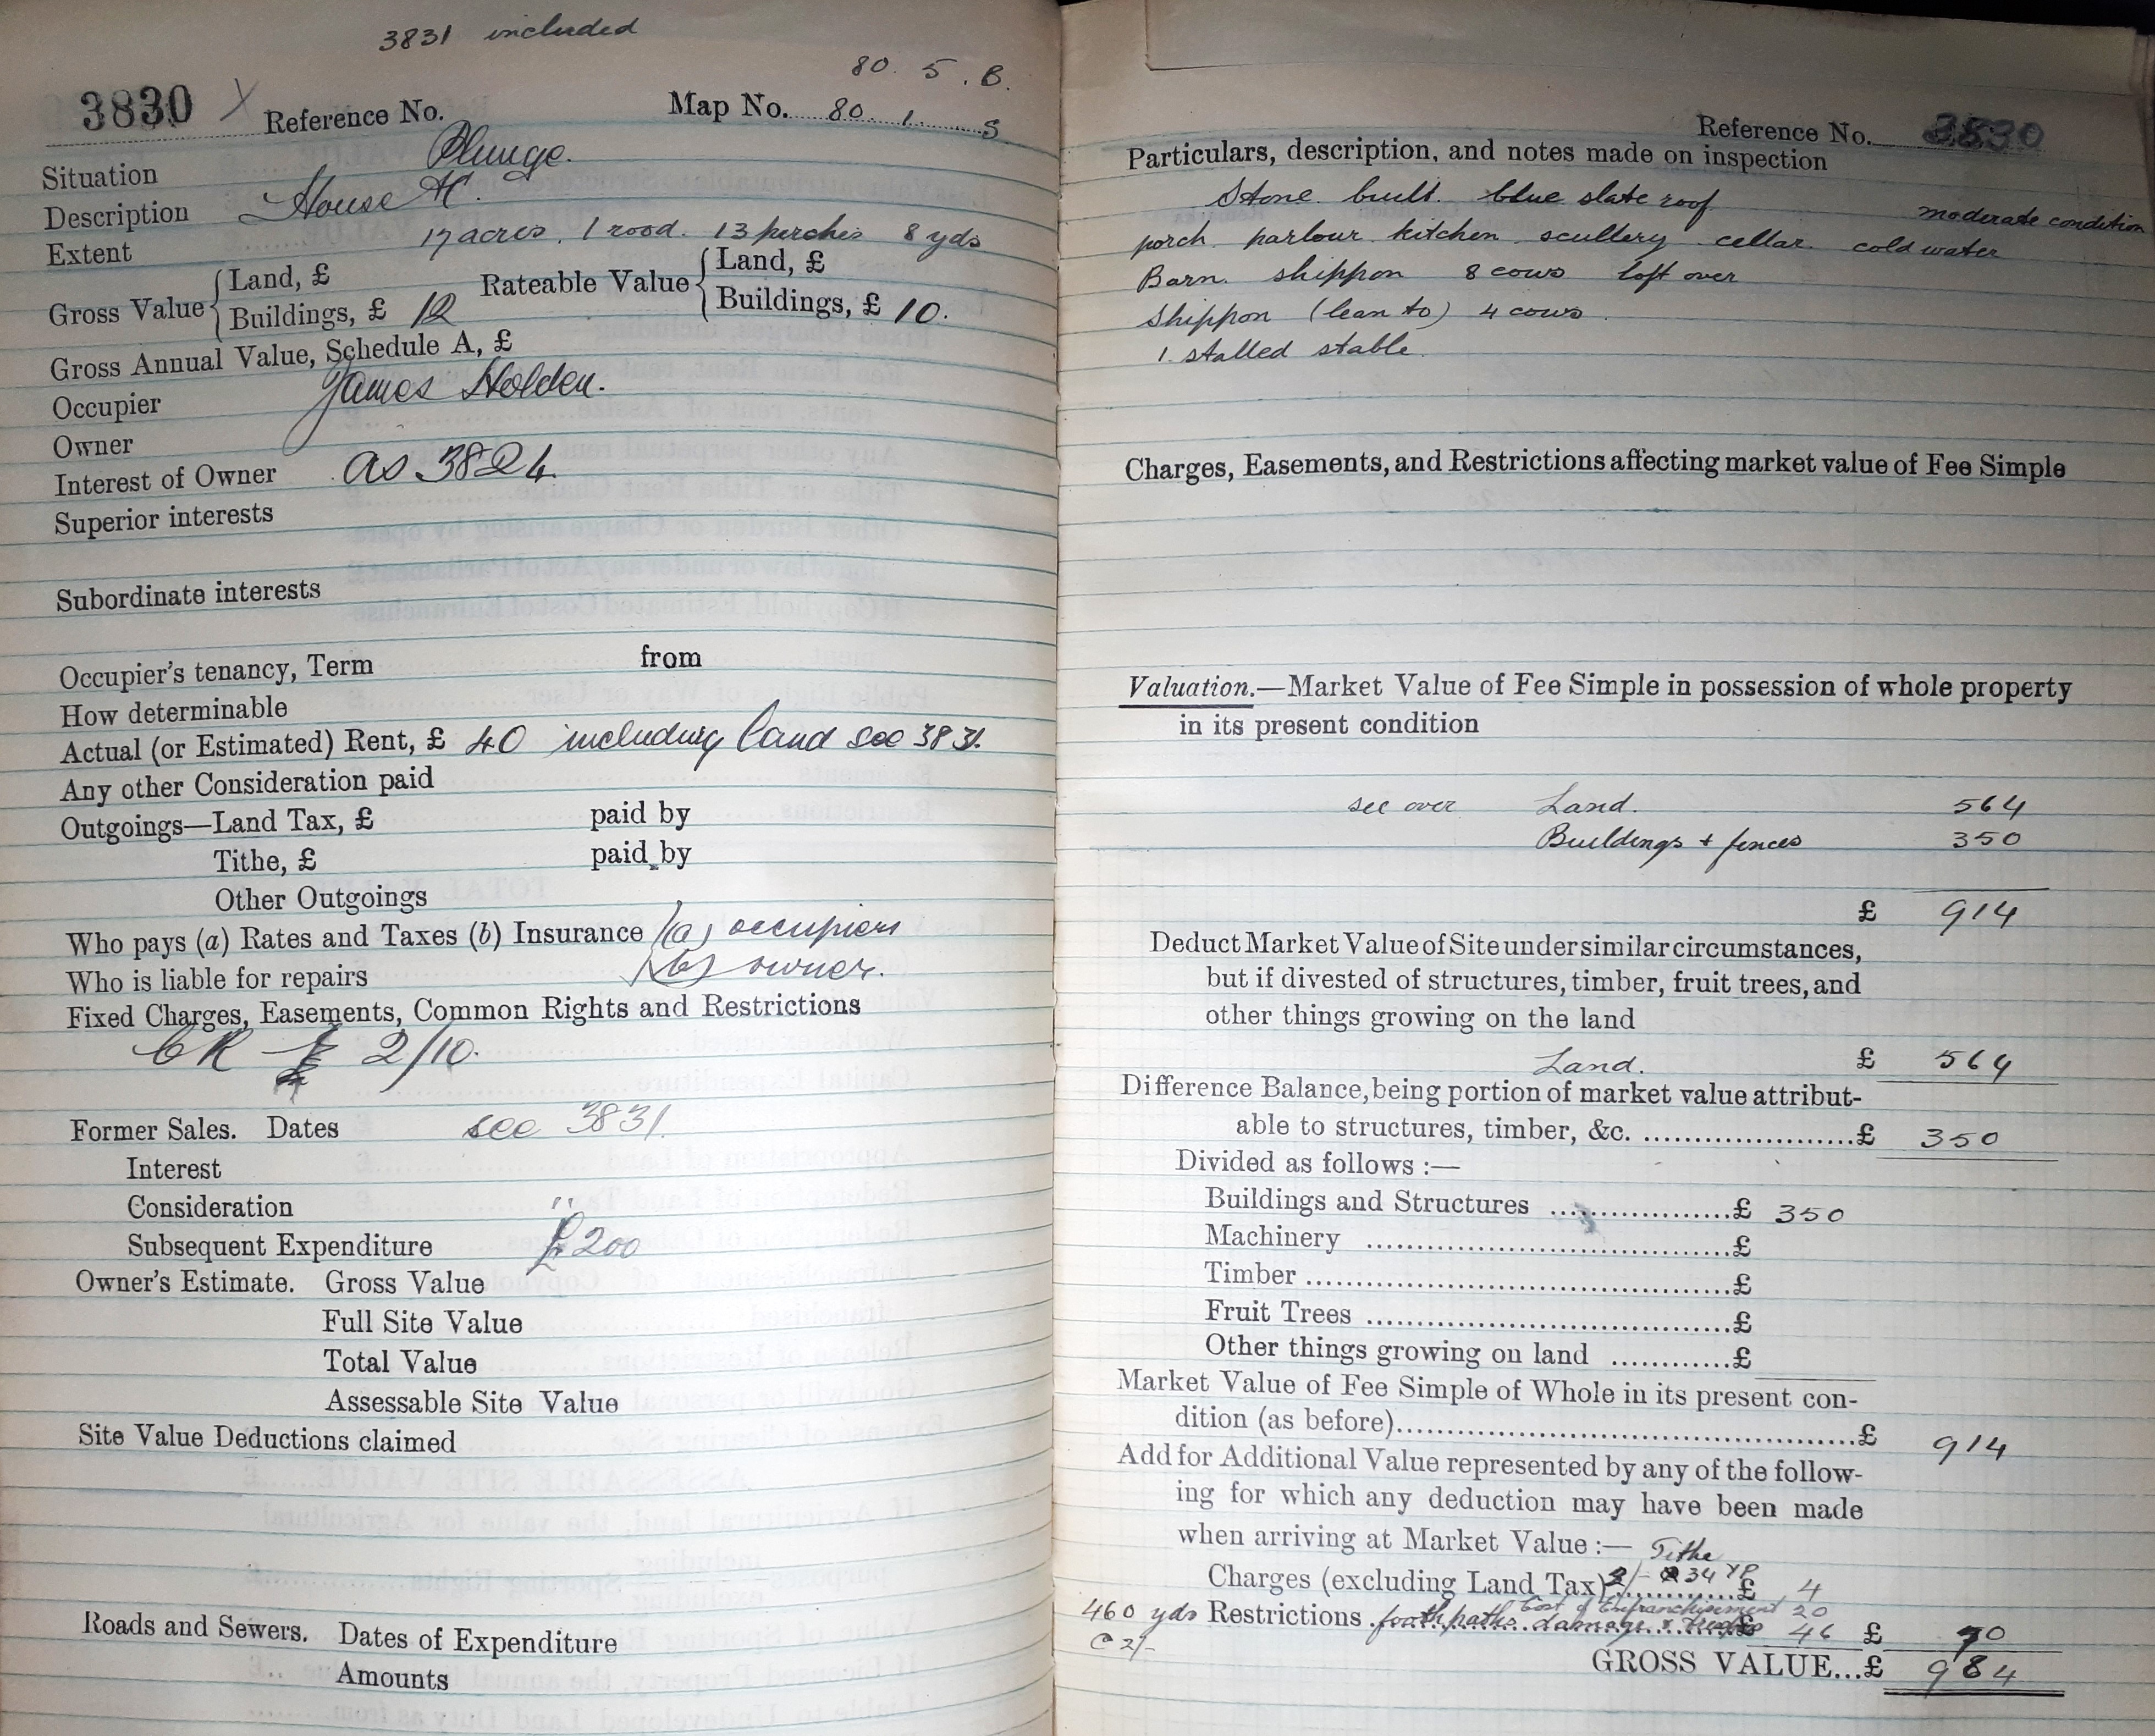 3831 included
80. 5. B.
3830 X Reference No. Map No. 80. 1. S
Situation Plunge.
Description House &c.
Extent 17 acres. 1 rood. 13 perches 8 yds
Gross Value { Land, £ Rateable Value { Land, £
Buildings, £ 12 Buildings, £ 10.
Gross Annual Value, Schedule A, £
Occupier James Holden.
Owner
Interest of Owner as 3824.
Superior interests
Subordinate interests
Occupier's tenancy, Term from
How determinable
Actual (or Estimated) Rent, £ 40 including land see 3831.
Any other Consideration paid
Outgoings—Land Tax, £ paid by
Tithe, £ paid by
Other Outgoings
Who pays (a) Rates and Taxes (b) Insurance (a) occupiers
Who is liable for repairs (b) owner.
Fixed Charges, Easements, Common Rights and Restrictions
CR £ 2/10.
Former Sales. Dates see 3831.
Interest
Consideration "
Subsequent Expenditure £200
Owner's Estimate. Gross Value
Full Site Value
Total Value
Assessable Site Value
Site Value Deductions claimed
Roads and Sewers. Dates of Expenditure
Amounts
Reference No. 3830
Particulars, description, and notes made on inspection
Stone built. blue slate roof moderate condition
porch. parlour. kitchen. scullery. cellar. cold water
Barn. shippon 8 cows loft over
Shippon (lean to) 4 cows.
1. stalled stable.
Charges, Easements, and Restrictions affecting market value of Fee Simple
Valuation.—Market Value of Fee Simple in possession of whole property
in its present condition
see over Land. 564
Buildings + fences 350
£ 914
Deduct Market Value of Site under similar circumstances,
but if divested of structures, timber, fruit trees, and
other things growing on the land
Land. £ 564
Difference Balance, being portion of market value attribut-
able to structures, timber, &c. .....................£ 350
Divided as follows :—
Buildings and Structures ...................£ 350
Machinery .....................................£
Timber ..........................................£
Fruit Trees .....................................£
Other things growing on land ............£
Market Value of Fee Simple of Whole in its present con-
dition (as before)..............................................£ 914
Add for Additional Value represented by any of the follow-
ing for which any deduction may have been made
when arriving at Market Value :— Tithe
Charges (excluding Land Tax) 2/- @ 34 YP £ 4
Cost of Enfranchisement 20
460 yds Restrictions footpaths damage £ 46 £ 70
@ 2/-
GROSS VALUE...£ 984